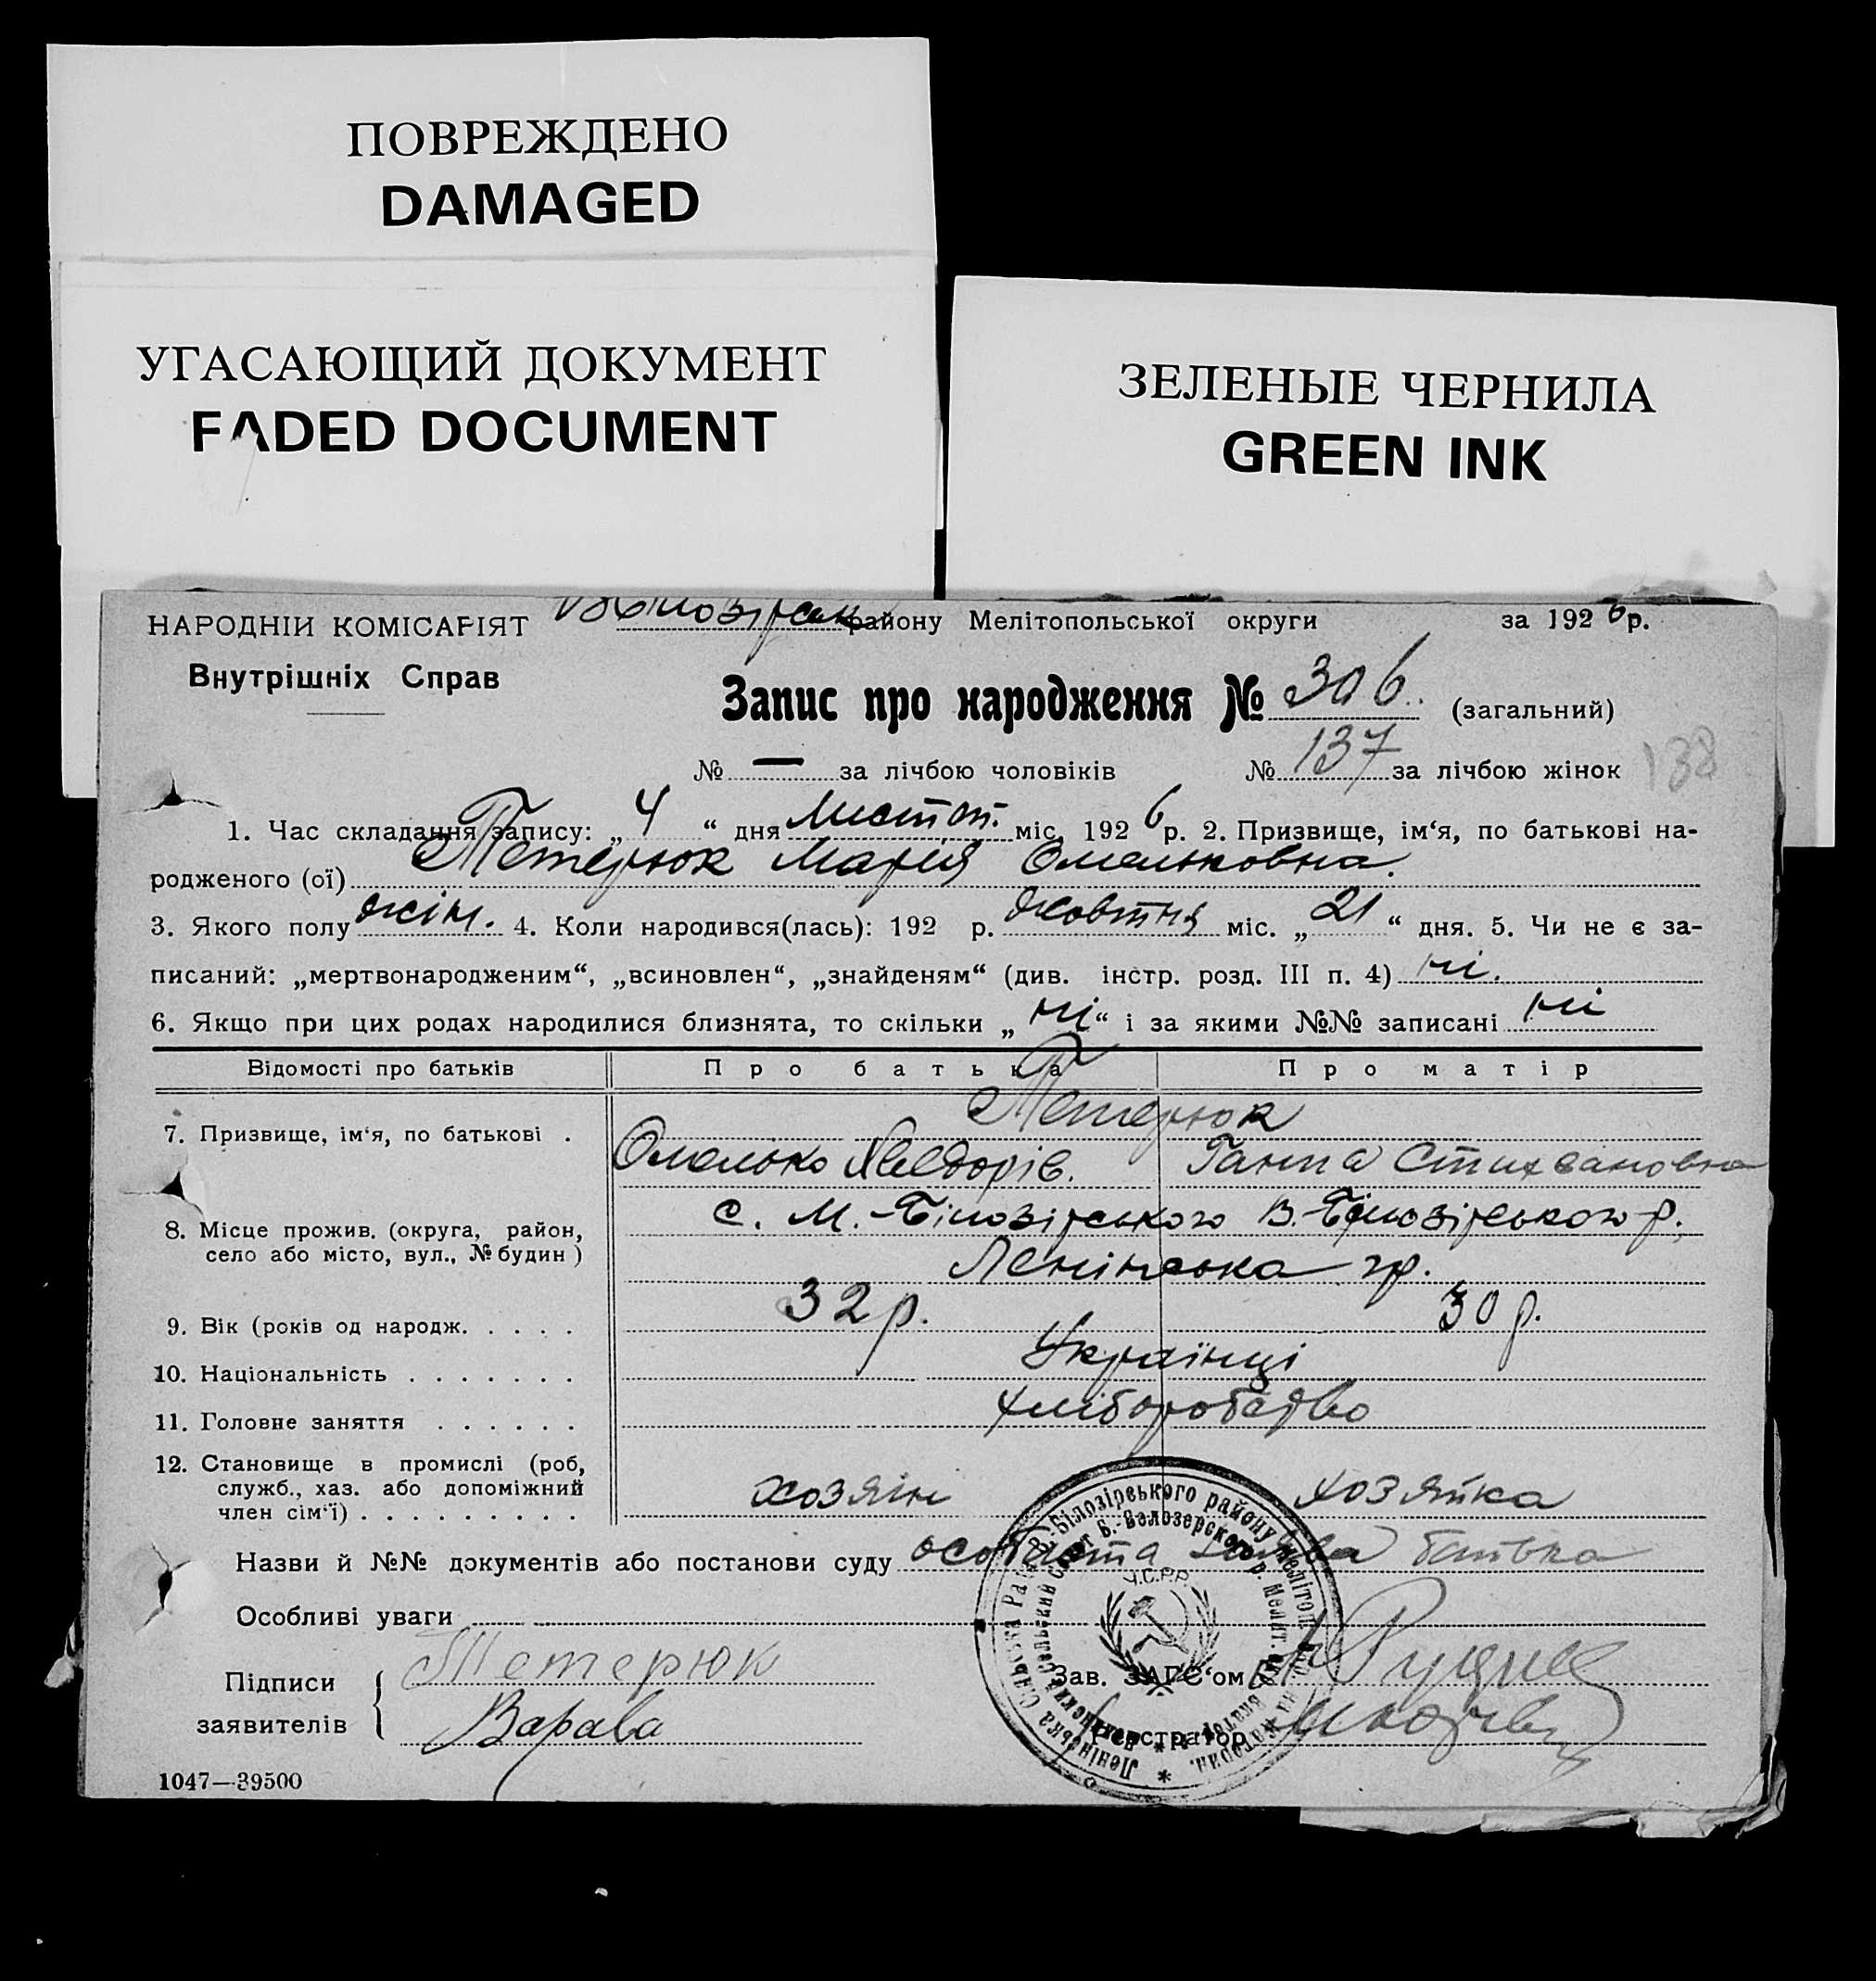 ПОВРЕЖДЕНО
DAMAGED
УГАСАЮЩИЙ ДОКУМЕНТ
FADED DOCUMENT
ЗЕЛЕНЫЕ ЧЕРНИЛА
GREEN INK
НАРОДНІЙ КОМІСАРІЯТ
Внутрішніх Справ
району Мелітопольської округи за 1926 р.
Запис про народження № 306. (загальний)
№ — за лічбою чоловіків № 137 за лічбою жінок 138
1. Час складання запису: „ 4 “ дня Листоп. міс. 1926 р. 2. Призвище, ім‘я, по батькові на-
родженого (ої) Тетерюк Марія Омельковна.
3. Якого полу жін. 4. Коли народився(лась): 192 р. жовтня міс. „ 21 “ дня. 5. Чи не є за-
писаний: „мертвонародженим“, „всиновлен“, „знайденям“ (див. інстр. розд. III п. 4) ні.
6. Якщо при цих родах народилися близнята, то скільки „ ні “ і за якими №№ записані ні
Відомості про батьків Про батька Про матір
Тетерюк
7. Призвище, ім‘я, по батькові .
Омелько Ганна
с. М.-Білозірського В.-Білозірського р.,
8. Місце прожив. (округа, район,
село або місто, вул., № будин )
Ленінська гр.
9. Вік (років од народж. . . . . 32 р. 30 р.
10. Національність . . . . . . . Українці
11. Головне заняття . . . . . . хліборобство
12. Становище в промислі (роб,
служб., хаз. або допоміжний
член сім‘ї) . . . . . . . . . хозяїн хозяйка
Назви й №№ документів або постанови суду особиста заява батька
Особливі уваги
Підписи
заявителів
Тетерюк
Варава
Зав. ЗАГС‘ом
Реєстратор
У.С.Р.Р.
1047—39500